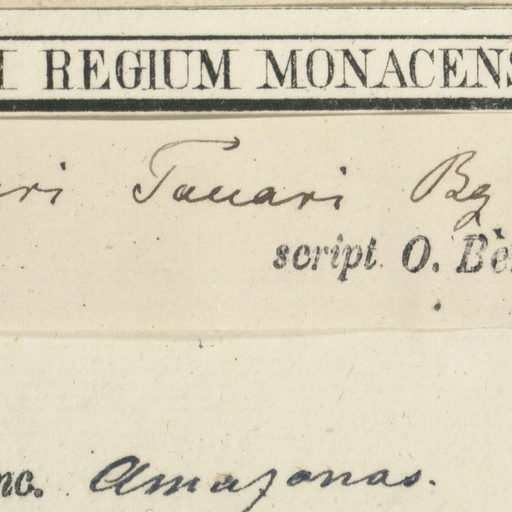 REGIUM MONACENS
Tauari Bg
script O. Bè
nc. Amazonas.